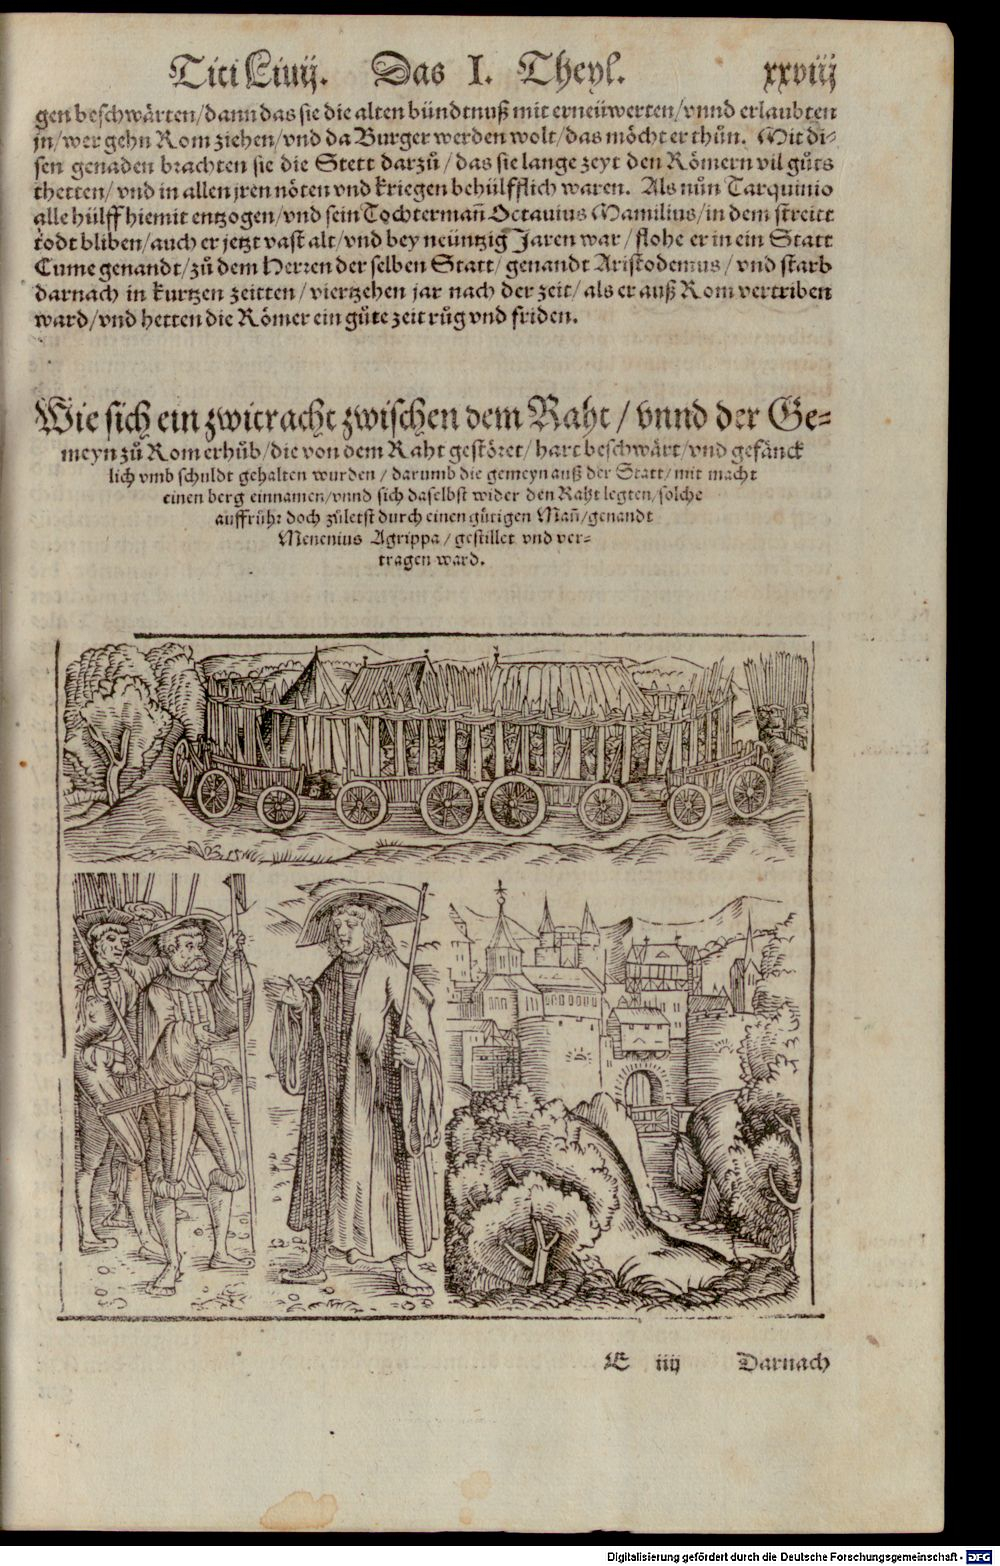 Titi Liuij. Das I. Theyl. xxviij
gen beschwärten/dann das sie die alten bündtnuß mit erneüwerten/vnnd erlaubten
jn/wer gehn Rom ziehen/vnd da Burger werden wolt/das möcht er thůn. Mit di-
sen genaden brachten sie die Stett darzů/das sie lange zeyt den Römern vil gůts
thetten/vnd in allen jren nöten vnd kriegen behülfflich waren. Als nůn Tarquinio
alle hülff hiemit entzogen/vnd sein Tochtermañ Octauius Mamilius/in dem streitt
todt bliben/auch er jetzt vast alt/vnd bey neüntzig Jaren war/flohe er in ein Statt
Cume genandt/zů dem Herren der selben Statt/genandt Aristodemus/vnd starb
darnach in kurtzen zeitten/viertzehen jar nach der zeit/als er auß Rom vertriben
ward/vnd hetten die Römer ein gůte zeit růg vnd friden.
Wie sich ein zwitracht zwischen dem Raht/vnnd der Ge-
meyn zů Rom erhůb/die von dem Raht gestöret/hart beschwärt/vnd gefänck
lich vmb schuldt gehalten wurden/darumb die gemeyn auß der Statt/mit macht
einen berg einnamen/vnnd sich daselbst wider den Raht legten/solche
auffrůhr doch zůletst durch einen gütigen Mañ/genandt
Menenius Agrippa/gestillet vnd ver-
tragen ward.
E iiij Darnach
Digitalisierung gefördert durch die Deutsche Forschungsgemeinschaft - DFG